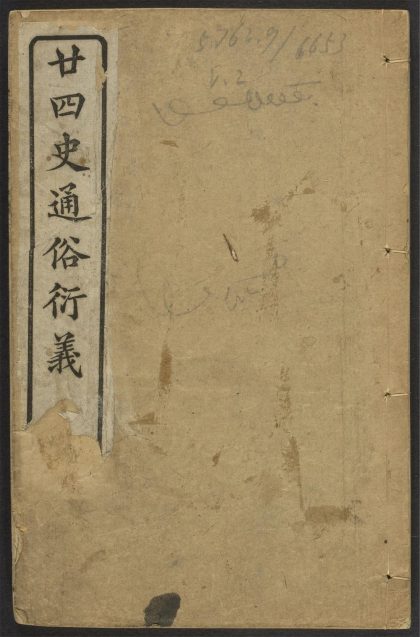 廿四史通俗衍義
5.762.9/6653
V.2